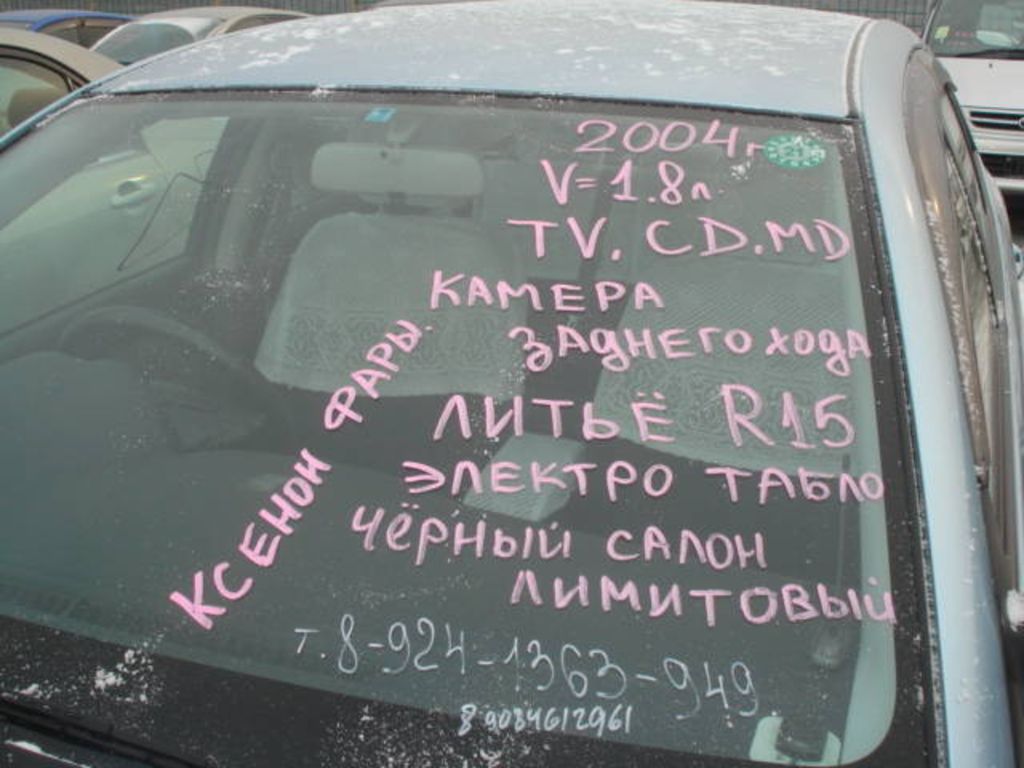 2004г
V=1.8л
TV. CD.MD
КАМЕРА
ЗАДНЕГО ХОДА
КСЕНОН ФАРЫ.
ЛИТЬЁ R15
ЭЛЕКТРО ТАБЛО
ЧЁРНЫЙ САЛОН
ЛИМИТОВЫЙ
т. 8-924-1363-949
89084612961